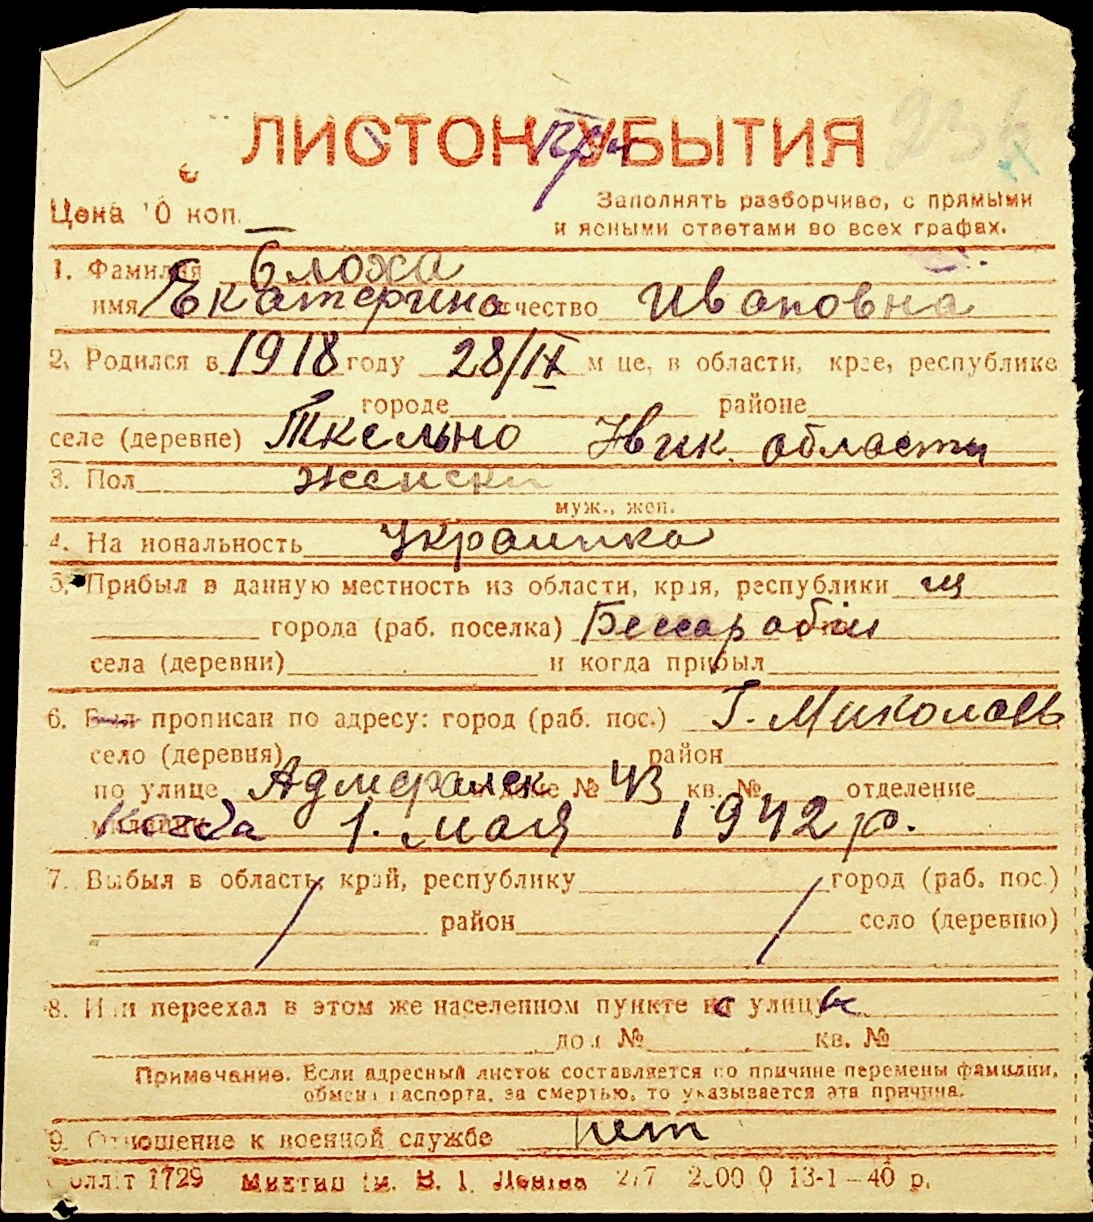 ЛИСТОК УБЫТИЯ
Цена 10 коп.
Заполнять разборчиво, с прямыми
и ясными ответами во всех графах.
1. Фамилия Блоха
имя Екатерина отчество Ивановна
2. Родился в 1918 году 28/IX м це, в области, крае, республике
городе районе
селе (деревне) Нвик. области
3. Пол женски
муж., жен.
4. Национальность Украинка
5. Прибыл в данную местность из области, края, республики
города (раб. поселка) Бессарабии
села (деревни) и когда прибыл
6. Был прописан по адресу: город (раб. пос.) Г. Миколаев
село (деревня) район
по улице Адмеральск доме № 43 кв. № отделение
Когда 1. мая 1942 р.
7. Выбыл в область, край, республику город (раб. пос.)
район село (деревню)
8. Или переехал в этом же населенном пункте с улицы
дом № кв. №
Примечание. Если адресный листок составляется по причине перемены фамилии,
обмена паспорта, за смертью, то указывается эта причина.
9. Отношение к военной службе нет
1729 ім. В. І. Леніна 13-1-40 р.